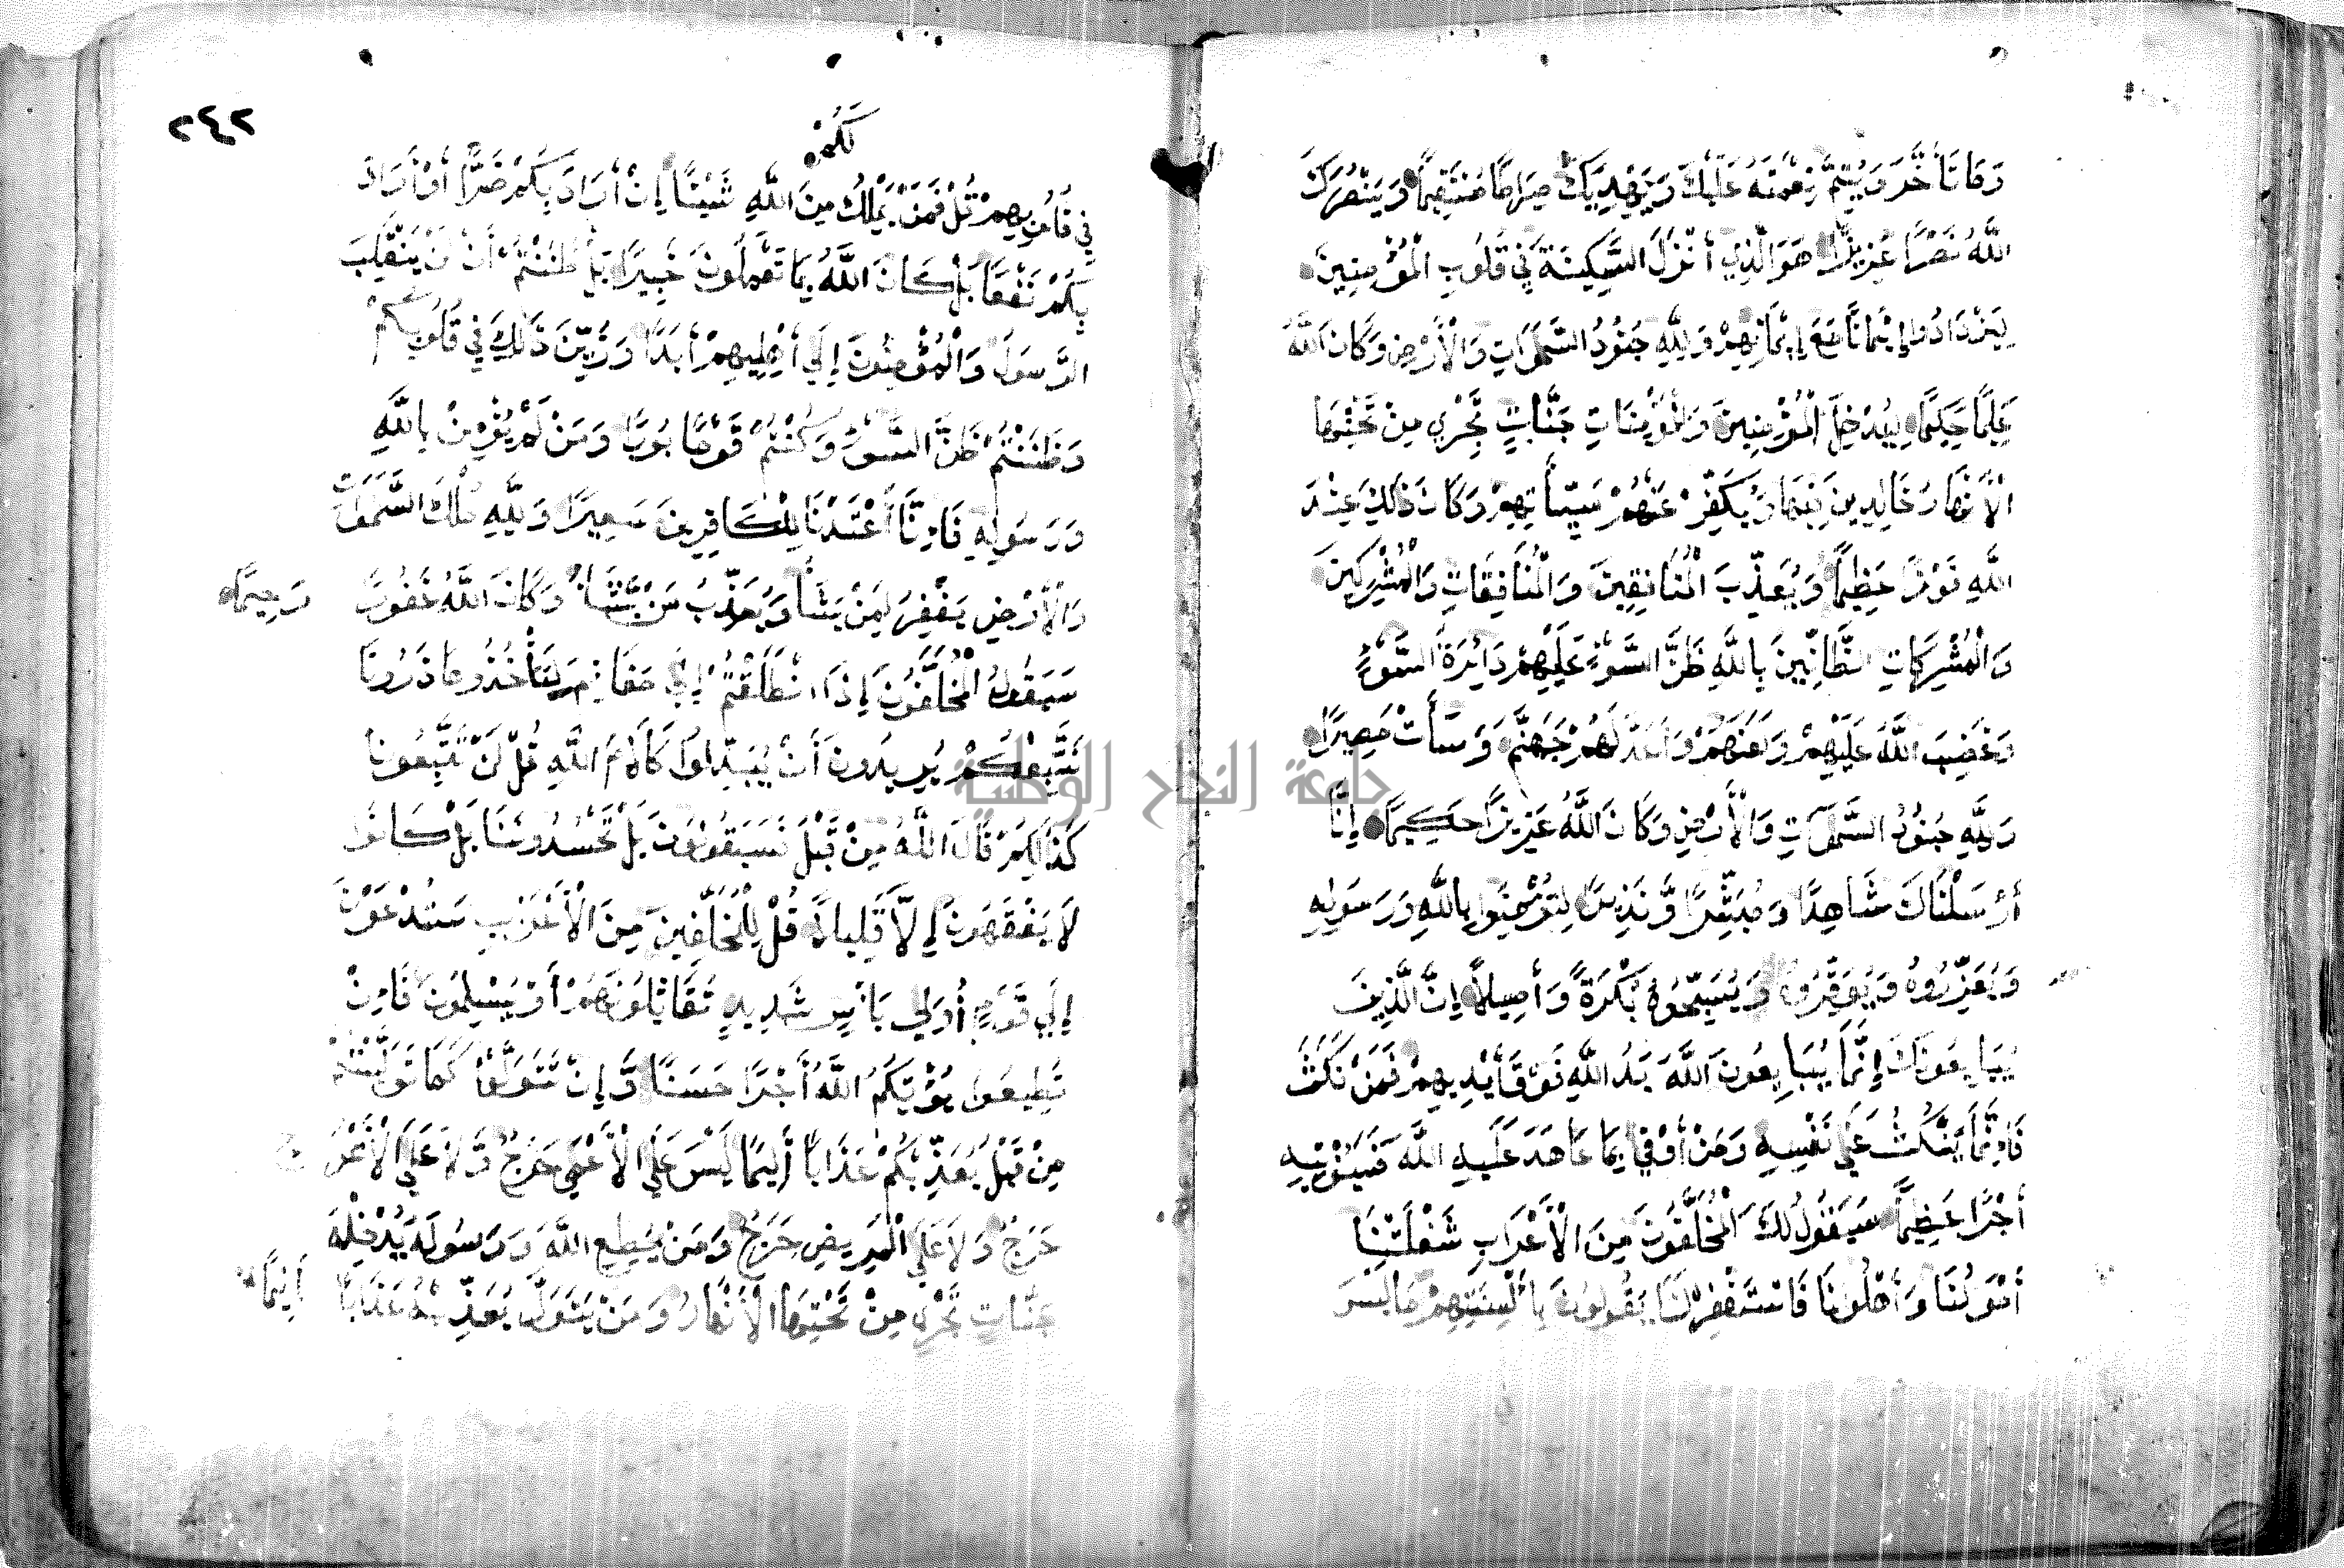 وَمَا تَأَخَّرَ وَيُتِمَّ نِعْمَتَهُ عَلَيْكَ وَيَهْدِيَكَ صِرَاطًا مُسْتَقِيمًا وَيَنْصُرَكَ
اللَّهُ نَصْرًا عَزِيزًا هُوَ الَّذِي أَنْزَلَ السَّكِينَةَ فِي قُلُوبِ الْمُؤْمِنِينَ
لِيَزْدَادُوا إِيْمَانًا مَعَ إِيْمَانِهِمْ وَلِلَّهِ جُنُودُ السَّمَوَاتِ وَالْأَرْضِ وَكَانَ اللَّهُ
عَلِيمًا حَكِيمًا لِيُدْخِلَ الْمُؤْمِنِينَ وَالْمُؤْمِنَاتِ جَنَّاتٍ تَجْرِي مِنْ تَحْتِهَا
الْأَنْهَارُ خَالِدِينَ فِيهَا وَيُكَفِّرَ عَنْهُمْ سَيِّأَتِهِمْ وَكَانَ ذَلِكَ عِنْدَ
اللَّهِ فَوْزًا عَظِيمًا وَيُعَذِّبَ الْمُنَافِقِينَ وَالْمُنَافِقَاتِ وَالْمُشْرِكِينَ
وَالْمُشْرِكَاتِ الظَّانِّينَ بِاللَّهِ ظَنَّ السَّوْءِ عَلَيْهِمْ دَائِرَةُ السَّوْءِ
وَغَضِبَ اللَّهُ عَلَيْهِمْ وَلَعَنَهُمْ وَأَعَدَّ لَهُمْ جَهَنَّمَ وَسَآءَتْ مَصِيرًا
وَلِلَّهِ جُنُودُ السَّمَوَاتِ وَالْأَرْضِ وَكَانَ اللَّهُ عَزِيزًا حَكِيمًا إِنَّا
أَرْسَلْنَاكَ شَاهِدًا وَمُبَشِّرًا وَّنَذِيرًا لِتُؤْمِنُوا بِاللَّهِ وَرَسُولِهِ
وَتُعَزِّرُوهُ وَتُوَقِّرُوهُ وَتُسَبِّحُوهُ بُكْرَةً وَأَصِيلًا إِنَّ الَّذِينَ
يُبَايِعُونَكَ إِنَّمَا يُبَايِعُونَ اللَّهَ يَدُ اللَّهِ فَوْقَ أَيْدِيهِمْ فَمَنْ نَكَثَ
فَإِنَّمَا يَنْكُثُ عَلَى نَفْسِهِ وَمَنْ أَوْفَى بِمَا عَاهَدَ عَلَيْهِ اللَّهَ فَسَيُؤْتِيهِ
أَجْرًا عَظِيمًا سَيَقُولُ لَكَ الْمُخَلَّفُونَ مِنَ الْأَعْرَابِ شَغَلَتْنَا
أَمْوَالُنَا وَأَهْلُونَا فَاسْتَغْفِرْ لَنَا يَقُولُونَ بِأَلْسِنَتِهِمْ مَا لَيْسَ
٢٤٢
لَكُمْ
فِي قُلُوبِهِمْ قُلْ فَمَنْ يَمْلِكُ مِنَ اللَّهِ شَيْئًا إِنْ أَرَادَ بِكُمْ ضَرًّا أَوْ أَرَادَ
بِكُمْ نَفْعًا بَلْ كَانَ اللَّهُ بِمَا تَعْمَلُونَ خَبِيرًا بَلْ ظَنَنْتُمْ أَنْ لَنْ يَنْقَلِبَ
الرَّسُولُ وَالْمُؤْمِنُونَ إِلَى أَهْلِيهِمْ أَبَدًا وَزُيِّنَ ذَلِكَ فِي قُلُوبِكُمْ
وَظَنَنْتُمْ ظَنَّ السَّوْءِ وَكُنْتُمْ قَوْمًا بُورًا وَمَنْ لَمْ يُؤْمِنْ بِاللَّهِ
وَرَسُولِهِ فَإِنَّا أَعْتَدْنَا لِلْكَافِرِينَ سَعِيرًا وَلِلَّهِ مُلْكُ السَّمَوَاتِ
وَالْأَرْضِ يَغْفِرُ لِمَنْ يَشَاءُ وَيُعَذِّبُ مَنْ يَّشَاءُ وَكَانَ اللَّهُ غَفُورًا رَحِيمًا
سَيَقُولُ الْمُخَلَّفُونَ إِذَا انْطَلَقْتُمْ إِلَى مَغَانِمَ لِتَأْخُذُوهَا ذَرُونَا
نَتَّبِعْكُمْ يُرِيدُونَ أَنْ يُبَدِّلُوا كَلَامَ اللَّهِ قُلْ لَنْ تَتَّبِعُونَا
كَذَالِكُمْ قَالَ اللَّهُ مِنْ قَبْلُ فَسَيَقُولُونَ بَلْ تَحْسُدُونَنَا بَلْ كَانُوا
لَا يَفْقَهُونَ إِلَّا قَلِيلًا قُلْ لِلْمُخَلَّفِينَ مِنَ الْأَعْرَابِ سَتُدْعَوْنَ
إِلَى قَوْمٍ أُولِي بَأْسٍ شَدِيدٍ تُقَاتِلُونَهُمْ أَوْ يُسْلِمُونَ فَإِنْ
تُطِيعُوا يُؤْتِكُمُ اللَّهُ أَجْرًا حَسَنًا وَّإِنْ تَتَوَلَّوْا كَمَا تَوَلَّيْتُمْ
مِنْ قَبْلُ يُعَذِّبْكُمْ عَذَابًا أَلِيمًا لَيْسَ عَلَى الْأَعْمَى حَرَجٌ وَّلَا عَلَى الْأَعْرَجِ
حَرَجٌ وَلَا عَلَى الْمَرِيضِ حَرَجٌ وَمَنْ يُطِعِ اللَّهَ وَرَسُولَهُ يُدْخِلْهُ
جَنَّاتٍ تَجْرِي مِنْ تَحْتِهَا الْأَنْهَارُ وَمَنْ يَتَوَلَّ يُعَذِّبْهُ عَذَابًا أَلِيمًا
جامعة النجاح الوطنية